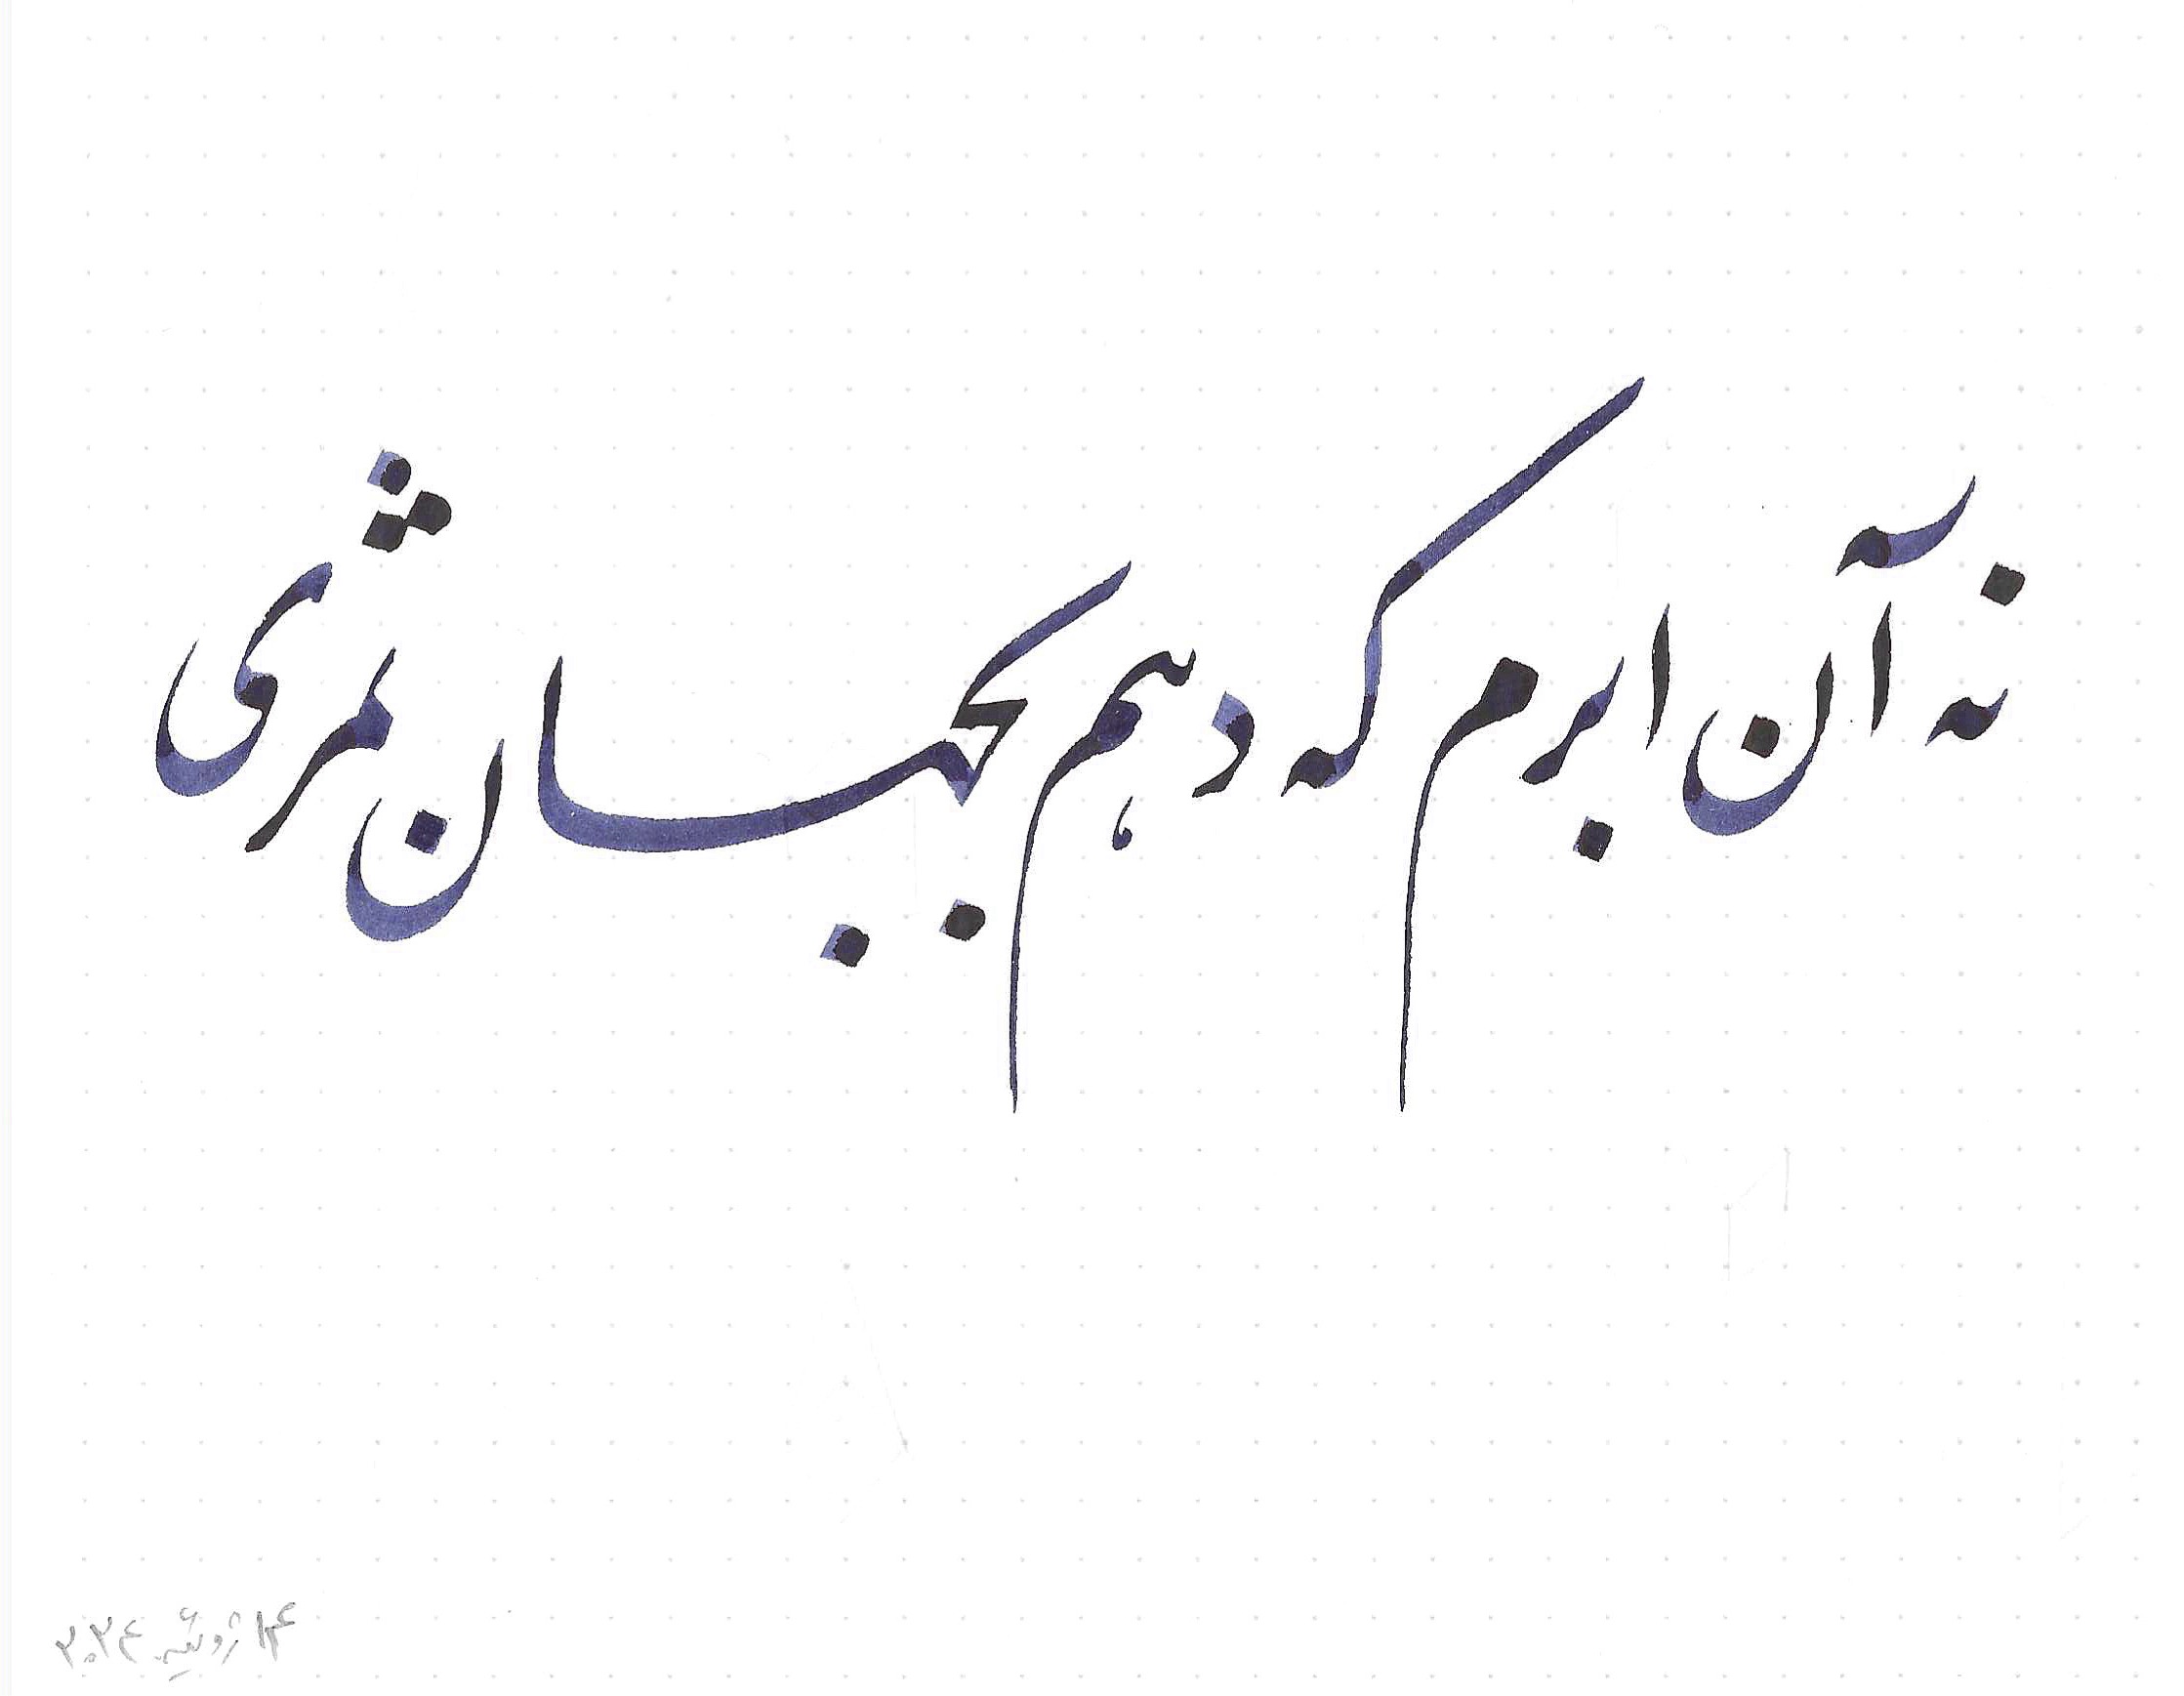 نه آن ابرم که دهم بجهان ثمری
۱۴ ژوئیه ۲۰۲۴